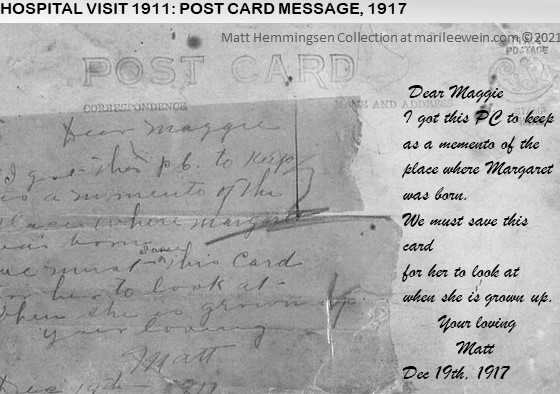 HOSPITAL VISIT 1911: POST CARD MESSAGE, 1917
Matt Hemmingsen Collection at marileewein.com ©2021
POST CARD
CORRESPONDENCE
NAME AND ADDRESS
POSTAGE
Dear Maggie
I got this P.C. to keep
as a memento of the
place where Margaret
was born.
we must save this Card
for her to look at
when she is grown up.
your loving
Matt
Dec 19th 1917
Dear Maggie
I got this PC to keep
as a memento of the
place where Margaret
was born.
We must save this
card
for her to look at
when she is grown up.
Your loving
Matt
Dec 19th, 1917